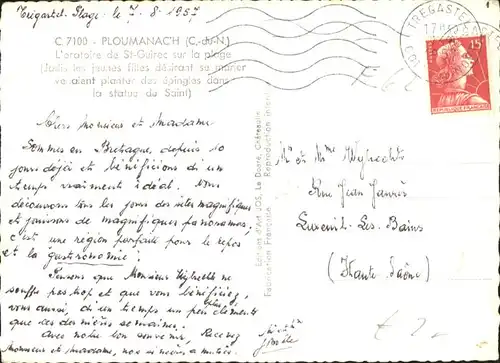 Trégastel. Plage. le 7. 8. 1957
C. 7100 - PLOUMANAC'H (C.-du-N.)
L'oratoire de St-Guirec sur la plage
(Jadis les jeunes filles désirant se marier
venaient planter des épingles dans
la statue du Saint)
Chers Monsieur et Madame
Sommes en Bretagne depuis 10
jours déjà et bénéficions d'un
temps vraiment idéal. Nous
découvrons tous les jours des sites magnifiques
et jouissons de magnifiques panoramas,
c'est une région parfaite pour le repos
et la gastronomie!
Pensons que Monsieur
souffre pas trop et que vous bénéficiez,
vous aussi, d'un temps un peu plus clément
que ces dernières semaines.
Avec notre bon souvenir, Recevez
Monsieur et Madame, nos amitiés
TREGASTEL
17H
POSTES
15F
REPUBLIQUE FRANÇAISE
Editions d'Art JOS, Le Doaré, Châteaulin
Fabrication Française Reproduction interd.
Mr et Mme
Rue Jean Jaurès
Luxeuil-Les-Bains
(Haute Saône)